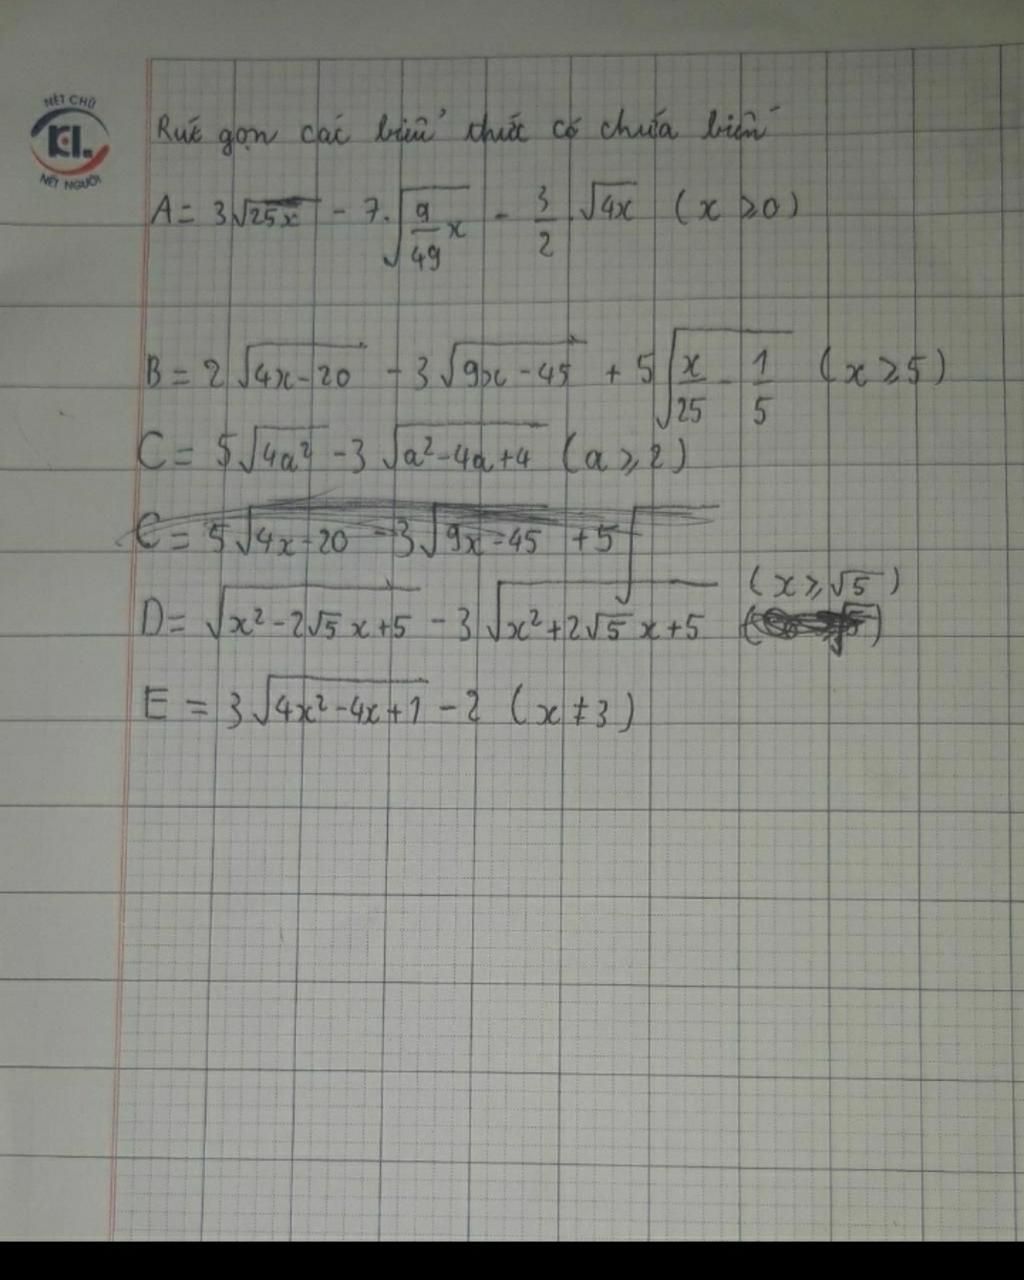 NÉT CHỮ
KH.
NÉT NGƯỜI
Rút gọn các biểu thức có chứa biến
A = 3√25x - 7.√(9/49 x) - 3/2 √4x (x ≥ 0)
B = 2√(4x-20) - 3√(9x-45) + 5√(x/25 - 1/5) (x ≥ 5)
C = 5√4a² - 3√(a²-4a+4) (a ≥ 2)
C = 5√(4x-20) - 3√(9x-45) + 5√
(x ≥ √5)
D = √(x²-2√5x+5) - 3√(x²+2√5x+5)
E = 3√(4x²-4x+1) - 2 (x ≠ 3)